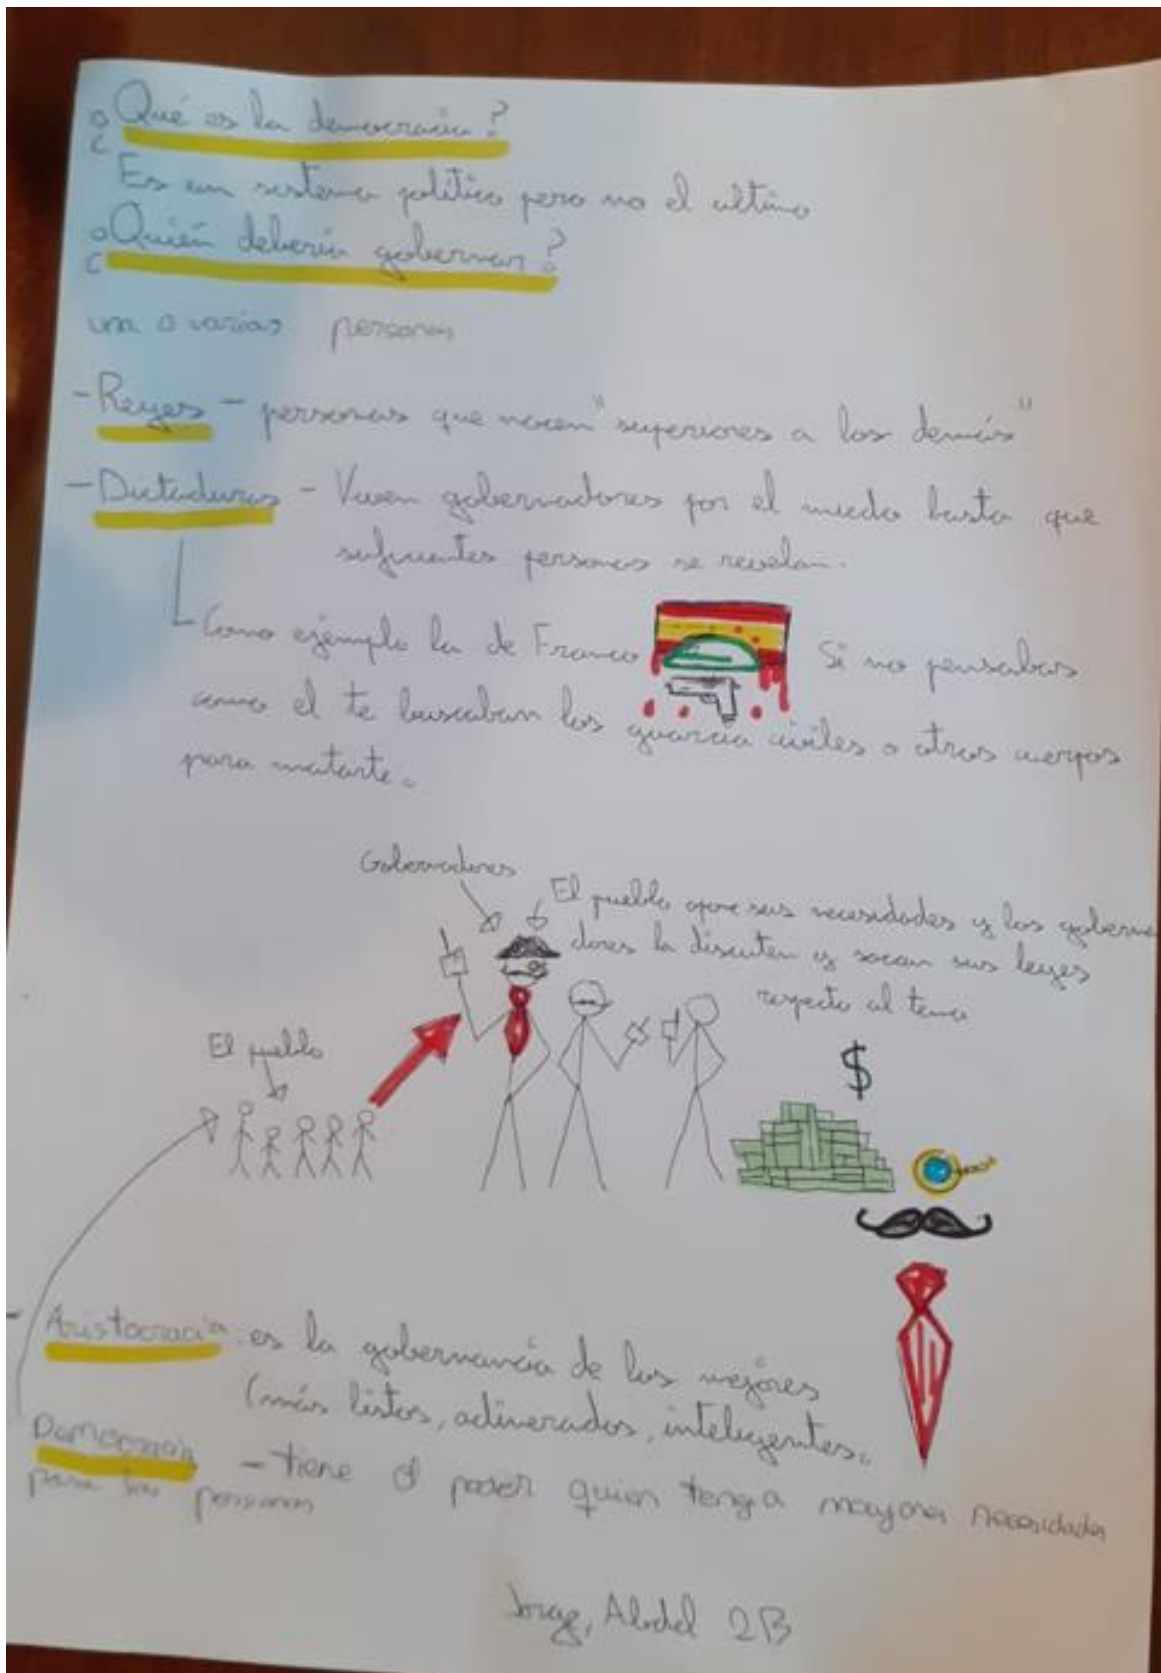 ¿Qué es la democracia?
Es un sistema político pero no el ultimo
¿Quién debería gobernar?
una o varias personas
- Reyes - personas que nacen "superiores a los demás"
- Dictaduras - Viven gobernadores por el miedo hasta que
suficientes personas se revelan.
Como ejemplo la de Franco Si no pensabas
como el te buscaban los guarcia civiles o otros cuerpos
para matarte.
Gobernadores
El pueblo opone sus necesidades y los goberna
dores la discuten y sacan sus leyes
respecto al tema
El pueblo
$
- Aristocracia: es la gobernancia de los mejores
(más listos, adinerados, inteligentes.
Democracia - tiene el poder quien tenga mayores necesidades
para las personas
Jorge, Abdel 2B